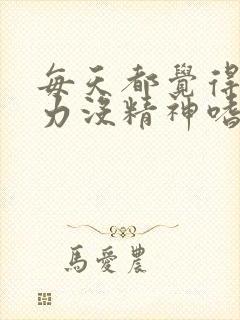 每天都覺得
力沒精神嗜
馬愛農